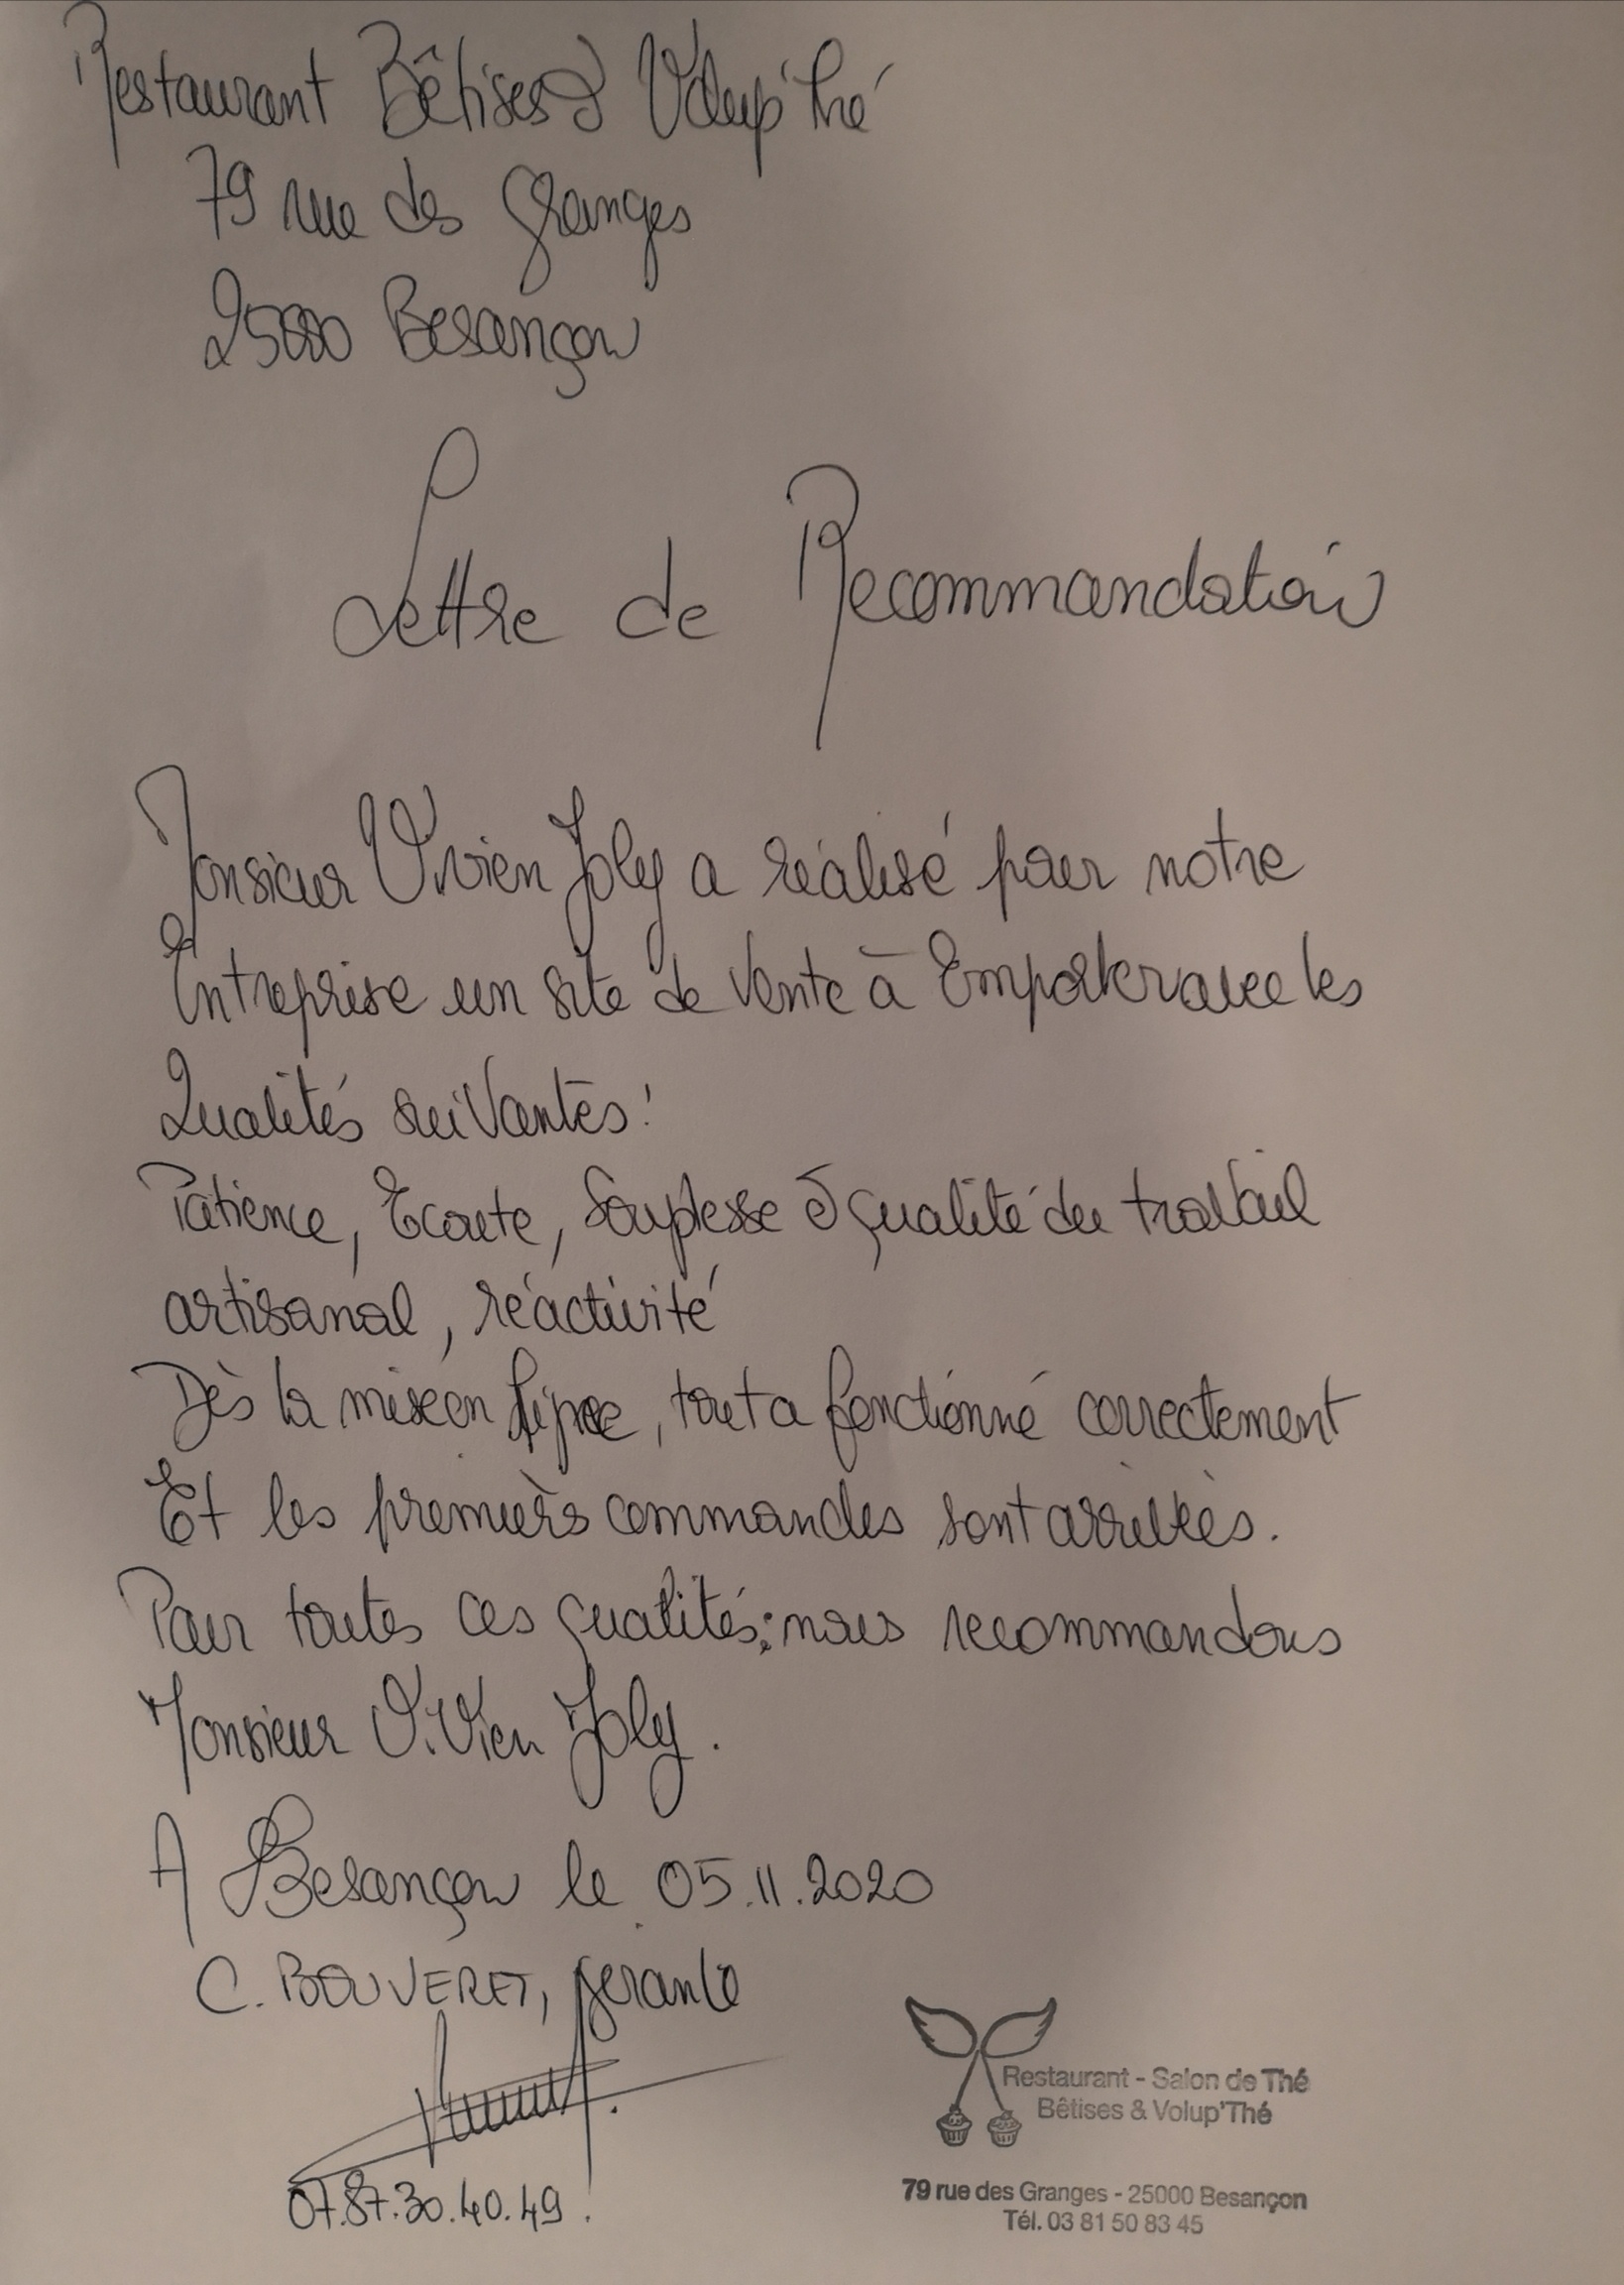 Restaurant Bêtises & Volup'thé
79 rue des Granges
25000 Besançon
Lettre de Recommandation
Monsieur Vivien Joly a réalisé pour notre
Entreprise un site de Vente à Emporter avec les
Qualités suivantes :
Patience, Ecoute, Souplesse & qualité du travail
artisanal, réactivité
Dès la mise en ligne, tout a fonctionné correctement
Et les premières commandes sont arrivées.
Pour toutes ces qualités, nous recommandons
Monsieur Vivien Joly.
A Besançon le 05.11.2020
C. BOUVERET, gerante
07.87.30.40.49.
Restaurant - Salon de Thé
Bêtises & Volup'Thé
79 rue des Granges - 25000 Besançon
Tél. 03 81 50 83 45